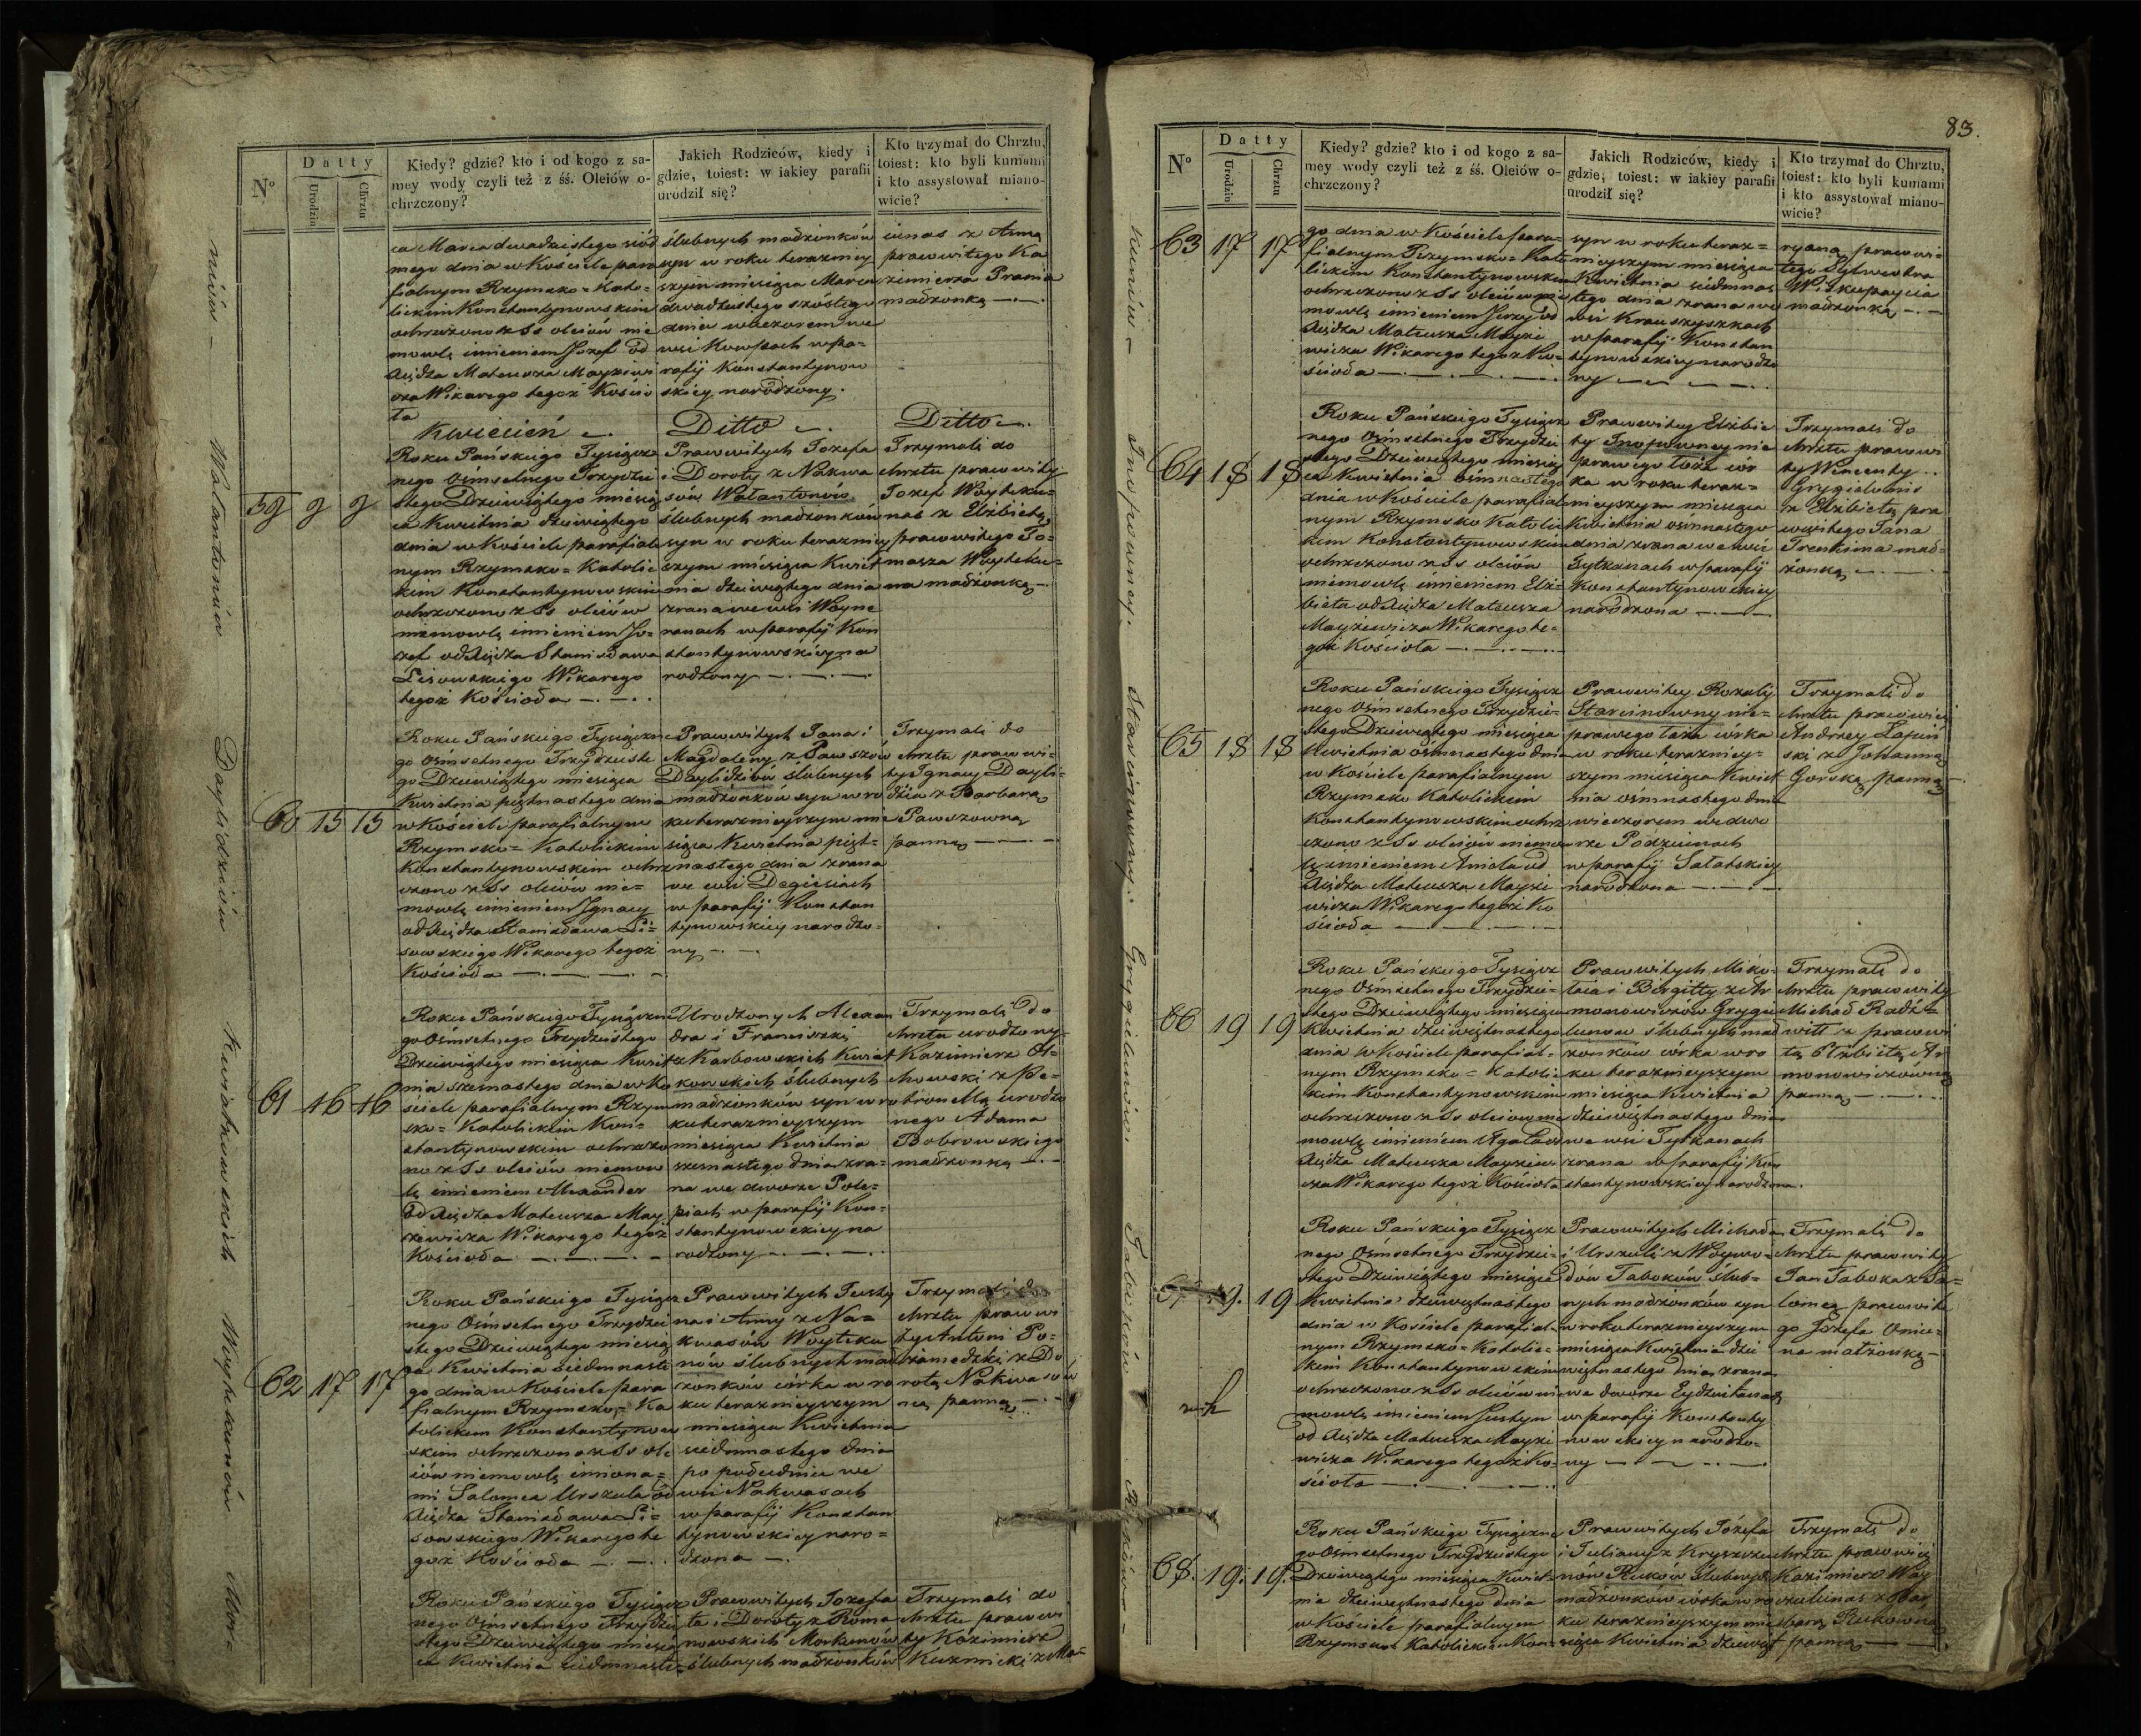 N°
Datty
Urodzin
Chrztu
Kiedy? gdzie? kto i od kogo z sa-
mey wody czyli też z śś. Oleiów o-
chrzczony?
Jakich Rodziców, kiedy i
gdzie, toiest: w iakiey parafii
urodził się?
Kto trzymał do Chrztu,
toiest: kto byli kumami
i kto assystował miano-
wicie?
ca Marca dwadziestego siód
mego dnia w Kościele para
fialnym Rzymsko = Kato-
lickim Konstantynowskim
ochrzczono z Ss oleiów nie
mowlę imieniem Jozef od
Xiędza Mateusza Mayzewi
cza Wikarego tegoż Kościo
ła
ślubnych małżonków
syn w roku teraźniey
szym miesiąca Marca
dwadziestego szóstego
dnia wieczorem we
wsi w pa-
rafij Konstantynow
skiey narodzony.
z Anną
prawowitego Ka
zimierza
małżonką
Kwiecień
Ditto
Ditto
59 9 9
Roku Pańskiego Tysiącz
nego Ośmsetnego Trzydzie
stego Dziewiątego miesią
ca Kwietnia dziewiątego
dnia w Kościele parafial
nym Rzymsko = Katolic
kim Konstantynowskim
ochrzczono z Ss oleiów
niemowlę imieniem Jo-
zef od Xiędza Stanisława
Lisowskiego Wikarego
tegoż Kościoła
Prawowitych Jozefa
i Doroty z Nakwa
sów Wałantonów
ślubnych małżonków
syn w roku teraźniey
szym miesiąca Kwiet
nia dziewiątego dnia
zrana we wsi Woyne
ranach w parafij Kon
stantynowskiey na
rodzony
Trzymali do
chrztu prawowity
Jozef Woyteku-
nas z Elżbietą
prawowitego To-
masza Woyteku-
na małżonką
60 15 15
Roku Pańskiego Tysiączne
go Ośmsetnego Trzydzieste
go Dziewiątego miesiąca
Kwietnia piętnastego dnia
w Kościele parafialnym
Rzymsko = Katolickim
Konstantynowskim ochrz
czono z Ss oleiów nie-
mowlę imieniem Ignacy
od Xiędza Stanisława Li-
sowskiego Wikarego tegoż
Kościoła
Prawowitych Jana i
Magdaleny z Pawszów
Daylidziów ślubnych
małżonków syn w ro
ku teraźnieyszym mie
siąca Kwietnia pięt-
nastego dnia zrana
we wsi Degiesiach
w parafij Konstan
tynowskiey narodzo-
ny
Trzymali do
chrztu prawowi-
ty Ignacy Dayli-
dzia z Barbarą
Pawszowną
panną
61 16 16
Roku Pańskiego Tysiączne
go Ośmsetnego Trzydziestego
Dziewiątego miesiąca Kwiet
nia szesnastego dnia w Ko
ściele parafialnym Rzym
sko = Katolickim Kon-
stantynowskim ochrzczo
no z Ss oleiów niemow
lę imieniem Alexander
od Xiędza Mateusza May
zewicza Wikarego tegoż
Kościoła
Urodzonych Alexan
dra i Franciszki
z Karbowskich Kwiat
kowskich ślubnych
małżonków syn w ro
ku teraźnieyszym
miesiąca Kwietnia
szesnastego dnia zra-
na we dworze Pole-
piach w parafij Kon-
stantynowskiey na
rodzony
Trzymali do
chrztu urodzony
Kazimierz
z Pe-
tronellą urodzo
nego Adama
Bobrowskiego
małżonką
62 17 17
Roku Pańskiego Tysiącz
nego Ośmsetnego Trzydzie
stego Dziewiątego miesią
ca Kwietnia siedmnaste
go dnia w Kościele para
fialnym Rzymsko = Ka
tolickim Konstantynow
skim ochrzczono z Ss ole
iów niemowlę imiona-
mi Salomea Urszula od
Xiędza Stanisława Li-
sowskiego Wikarego te
goż Kościoła
Prawowitych Justy
na i Anny z Na-
kwasów Woyteku
nów ślubnych mał
żonków córka w ro
ku teraźnieyszym
miesiąca Kwietnia
siedmnastego dnia
po południu we
wsi Nakwasach
w parafij Konstan
tynowskiey naro-
dzona
Trzymali do
chrztu prawowi
ty Antoni
z Do
rotą Nakwasów
ną panną
Roku Pańskiego Tysiącz
nego Ośmsetnego Trzydzie
stego Dziewiątego miesią
ca Kwietnia siedmnaste
Prawowitych Jozefa
ta i Doroty z Roma
nowskich Morkunów
ślubnych małżonków
Trzymali do
chrztu prawowi
ty Kazimierz
Kuzmicki z Ma-
Wałantonów
Daylidziów
Kwiatkowskich
Woytekunów
83.
N°
Datty
Urodzin
Chrztu
Kiedy? gdzie? kto i od kogo z sa-
mey wody czyli też z śś. Oleiów o-
chrzczony?
Jakich Rodziców, kiedy i
gdzie, toiest: w iakiey parafii
urodził się?
Kto trzymał do Chrztu,
toiest: kto byli kumami
i kto assystował miano-
wicie?
63 17 17
go dnia w Kościele para-
fialnym Rzymsko = Kato
lickim Konstantynowskim
ochrzczono z Ss oleiów nie
mowlę imieniem Jerzy od
Xiędza Mateusza Mayze
wicza Wikarego tegoż Ko-
ścioła
syn w roku teraz-
nieyszym miesiąca
Kwietnia siedmnas
tego dnia zrana we
wsi Krauszyszkach
w parafij Konstan
tynowskiey narodzo
ny
ryaną prawowi-
tego Sylwestra
małżonką
64 18 18
Roku Pańskiego Tysiącz
nego Ośmsetnego Trzydzie
stego Dziewiątego miesią
ca Kwietnia ośmnastego
dnia w Kościele parafial
nym Rzymsko Katolic
kim Konstantynowskim
ochrzczono z Ss oleiów
niemowlę imieniem Elż-
bieta od Xiędza Mateusza
Mayzewicza Wikarego te-
goż Kościoła
Prawowitey Elżbie
ty nie
prawego łoża cór
ka w roku teraz-
nieyszym miesiąca
Kwietnia ośmnastego
dnia zrana we wsi
Tytkanach w parafij
Konstantynowskiey
narodzona
Trzymali do
chrztu prawowi
ty Wincenty
Grygielunis
z Elżbietą pra
wowitego Jana
Trenkima mał-
żonką
65 18 18
Roku Pańskiego Tysiącz
nego Ośmsetnego Trzydzie-
stego Dziewiątego miesiąca
Kwietnia ośmnastego dnia
w Kościele parafialnym
Rzymsko Katolickim
Konstantynowskim ochrz
czono z Ss oleiów niemow
lę imieniem Aniela od
Xiędza Mateusza Mayze
wicza Wikarego tegoż Ko
ścioła
Prawowitey Rozalij
Starcinowny nie-
prawego łoża córka
w roku teraźniey-
szym miesiąca Kwiet
nia ośmnastego dnia
wieczorem we dwo
rze Podziunach
w parafij Sałatskiey
narodzona
Trzymali do
chrztu prawowici
Andrzey Łapin
ski z Johanną
Gorską panną
66 19 19
Roku Pańskiego Tysiącz
nego Ośmsetnego Trzydzie-
stego Dziewiątego miesiąca
Kwietnia dziewiętnastego
dnia w Kościele parafial-
nym Rzymsko = Katolic
kim Konstantynowskim
ochrzczono z Ss oleiów nie
mowlę imieniem Agata od
Xiędza Mateusza Mayzewi
cza Wikarego tegoż Kościoła
Prawowitych Miko-
łaia i Brigitty z Ar
monowiczów Grygie
lunow ślubnych mał
żonków córka w ro
ku teraźnieyszym
miesiąca Kwietnia
dziewiętnastego dnia
we wsi Tytkanach
zrana w parafij Kon
stantynowskiey narodzona.
Trzymali do
chrztu prawowity
Michał Radź-
wiłł z prawowi
tą Elżbietą Ar
monowiczówną
panną
67 19. 19
Roku Pańskiego Tysiącz
nego Ośmsetnego Trzydzie-
stego Dziewiątego miesiąca
Kwietnia dziewiętnastego
dnia w Kościele parafial-
nym Rzymsko = Katolic-
kim Konstantynowskim
ochrzczono z Ss oleiów nie
mowlę imieniem Justyn
od Xiędza Mateusza Mayze
wicza Wikarego tegoż Ko-
ścioła
Prawowitych Michała
i Urszuli z Woywo-
dów Taboków ślub-
nych małżonków syn
w roku teraźnieyszym
miesiąca Kwietnia dzie
więtnastego dnia zrana
we dworze
w parafij Konstanty
nowskiey narodzo-
ny
Trzymali do
chrztu prawowity
Jan Taboka z Sa-
lomeą prawowite
go Józefa
na małżonką
68. 19. 19.
Roku Pańskiego Tysiączne
go Ośmsetnego Trzydziestego
Dziewiątego miesiąca Kwiet-
nia dziewiętnastego dnia
w Kościele parafialnym
Rzymsko Katolickim Kon-
Prawowitych Józefa
i Juliany z Kryszczu
nów Ruków ślubnych
małżonków córka w ro
ku teraźnieyszym mie
siąca Kwietnia dziewięt
Trzymali do
chrztu prawowici
Kazimierz Way
z Bar
barą Rukowną
panną
Starcinowny.
Grygielunów.
Taboków.
Ruków